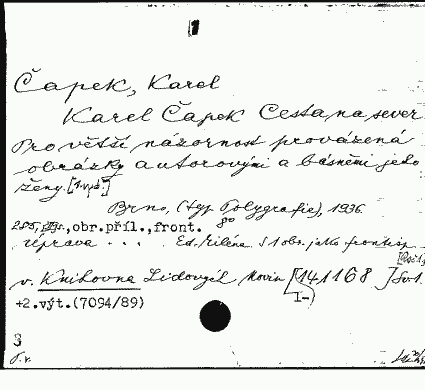 1
Čapek, Karel
Karel Čapek Cesta na sever
Pro větší názornost provázená
obrázky autorovými a básněmi jeho
ženy. [1. vyd.]
Brno, (typ. Polygrafie), 1936.
255, obr.příl.,front. 8°
Úprava . . . Ed. Milén. S 1 obr. jako frontisp.
v. Knihovna Lidových Novin [141168] Sv. 1.
I-)
+2.výt.(7094/89)
3